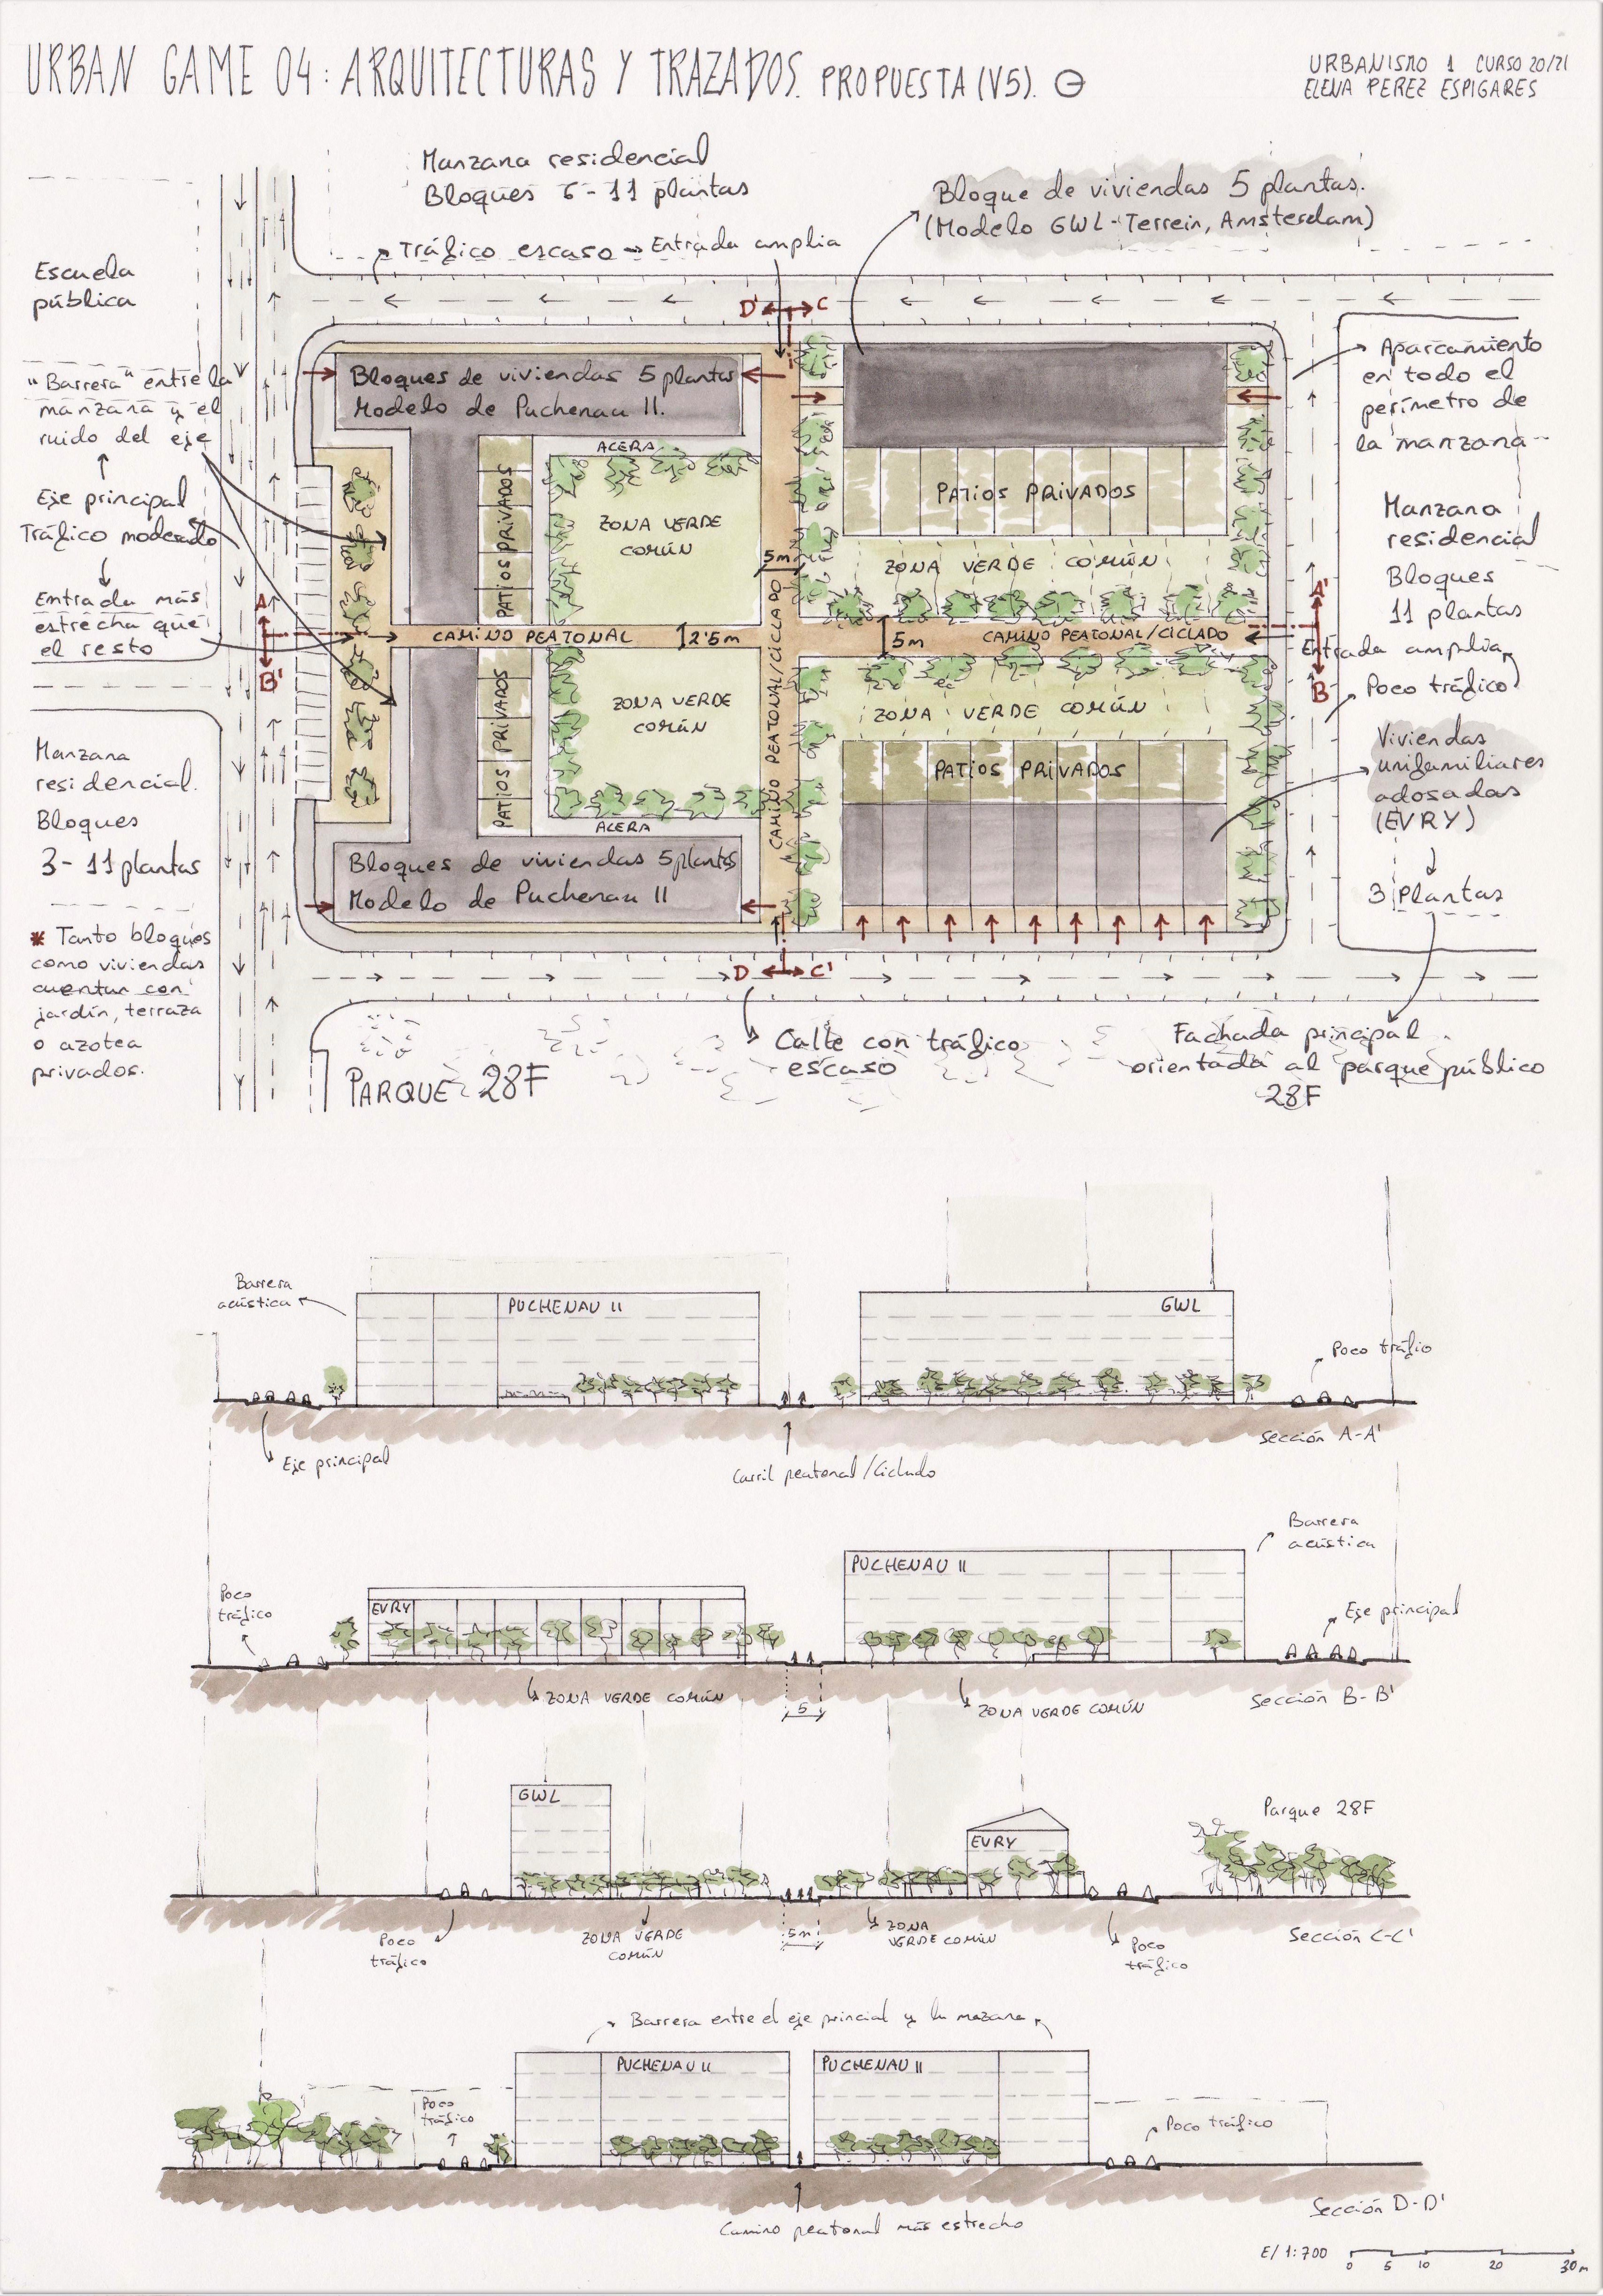 URBAN GAME 04: ARQUITECTURAS Y TRAZADOS. PROPUESTA (V5).
URBANISMO 1 CURSO 20/21
ELENA PEREZ ESPIGARES
Manzana residencial
Bloques 6-11 plantas
Tráfico escaso → Entrada amplia
Bloque de viviendas 5 plantas.
(Modelo GWL-Terrein, Amsterdam)
Escuela
pública
"Barrera" entre la
manzana y el
ruido del eje
Eje principal
Tráfico moderado
Entrada más
estrecha que
el resto
Manzana
residencial.
Bloques
3-11 plantas
* Tanto bloques
como viviendas
cuentan con
jardín, terraza
o azotea
privados.
D' C
Bloques de viviendas 5 plantas
Modelo de Puchenau II.
ACERA
PATIOS PRIVADOS
ZONA VERDE
COMÚN
PATIOS PRIVADOS
ZONA VERDE COMÚN
5m
A
B'
CAMINO PEATONAL
2'5m
CAMINO PEATONAL/CICLADO
5m
CAMINO PEATONAL/CICLADO
A'
B
PATIOS PRIVADOS
ZONA VERDE
COMÚN
ZONA VERDE COMÚN
PATIOS PRIVADOS
ACERA
Bloques de viviendas 5 plantas
Modelo de Puchenau II
D C'
Aparcamiento
en todo el
perímetro de
la manzana
Manzana
residencial
Bloques
11 plantas
Entrada amplia
Poco tráfico
Viviendas
unifamiliares
adosadas
(EVRY)
3 Plantas
PARQUE 28F
Calle con tráfico
escaso
Fachada principal
orientada al parque público
28F
Barrera
acústica
PUCHENAU II
GWL
Poco tráfio
Eje principal
Carril peatonal/Ciclado
Sección A-A'
Poco
tráfico
EVRY
PUCHENAU II
Barrera
acústica
Eje principal
ZONA VERDE COMÚN
5
ZONA VERDE COMÚN
Sección B-B'
GWL
EVRY
Parque 28F
Poco
tráfico
ZONA VERDE
COMÚN
5m
ZONA
VERDE COMÚN
Poco
tráfico
Sección C-C'
Barrera entre el eje princial y la mazana
Poco
tráfico
PUCHENAU II
PUCHENAU II
Poco tráfico
Camino peatonal más estrecho
Sección D-D'
E/ 1:700
0 5 10 20 30 m